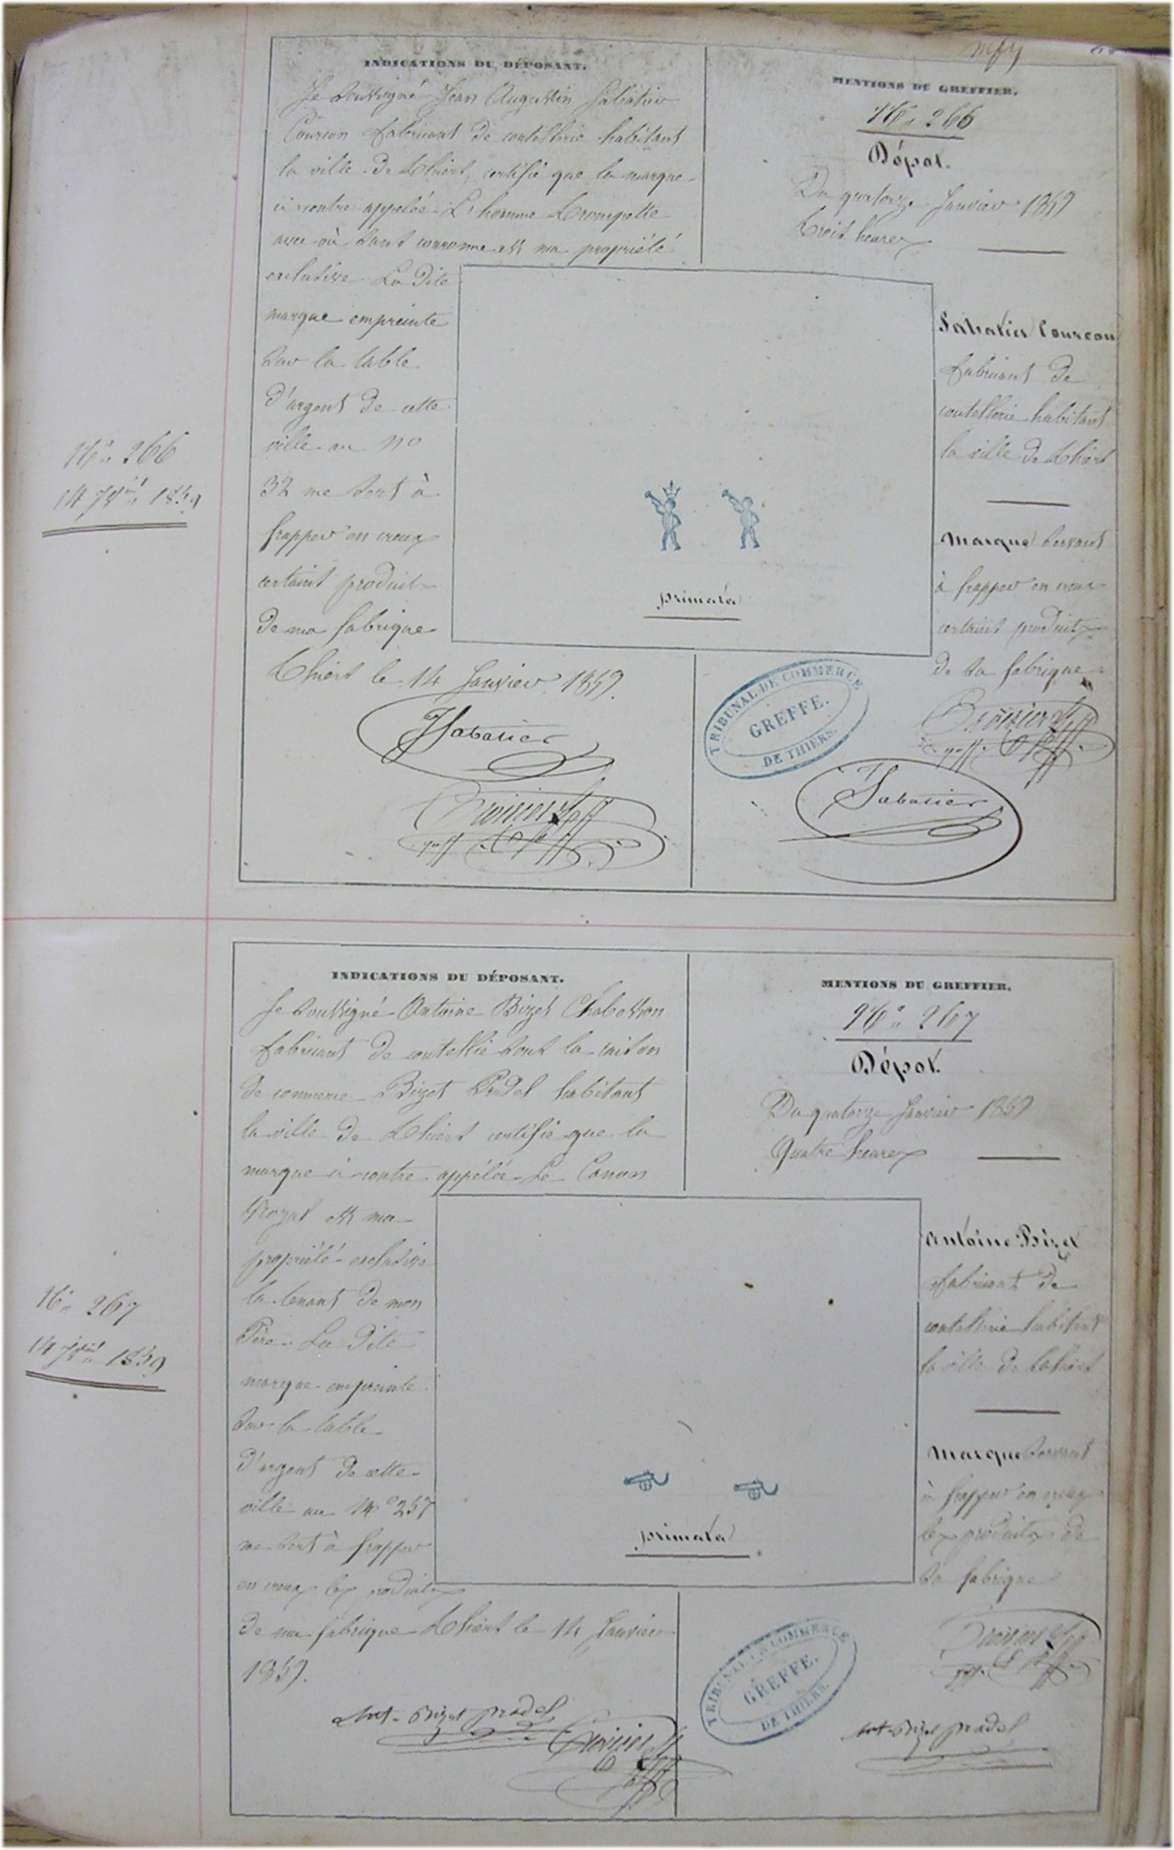 INDICATIONS DU DÉPOSANT.
Je soussigné Jean Augustin Sabatier
Courcon fabricant de coutellerie habitant
la ville de Thiers, certifie que la marque
ci contre appelée L'homme trompette
avec où sans couronne est ma propriété
exclusive La dite
marque empreinte
sur la table
d'argent de cette
ville au no
32 me sert à
frapper en creux
certains produits
de ma fabrique
Thiers le 14 Janvier 1859.
Sabatier
MENTIONS DU GREFFIER.
No 266
Dépot.
Du quatorze Janvier 1859
trois heures
Sabatier Courcon
fabricant de
coutellerie habitant
la ville de Thiers
Marque servant
à frapper en creux
certains produits
de sa fabrique
primata
TRIBUNAL DE COMMERCE
GREFFE.
DE THIERS.
Sabatier
No 266
14 Jvier 1859
INDICATIONS DU DÉPOSANT.
Je soussigné Antoine Bizet Chabosson
fabricant de coutellie sous la raison
de commerce Bizet Pradel habitant
la ville de Thiers certifie que la
marque ci contre appelée Le Canon
Royal est ma
propriété exclusive
la tenant de mon
Père. La dite
marque empreinte
sur la table
d'argent de cette
ville au No 257
me sert à frapper
en creux les produits
de ma fabrique Thiers le 14 Janvier
1859.
Ant. Bizet pradel
MENTIONS DU GREFFIER.
No 267
Dépot.
Du quatorze Janvier 1859
Quatre heures
Antoine Bizet
fabricant de
coutellerie habitant
la ville de Thiers
Marque servant
à frapper en creux
les produits de
sa fabrique
primata
TRIBUNAL DE COMMERCE
GREFFE.
DE THIERS.
Ant. Bizet pradel
No 267
14 Jvier 1859